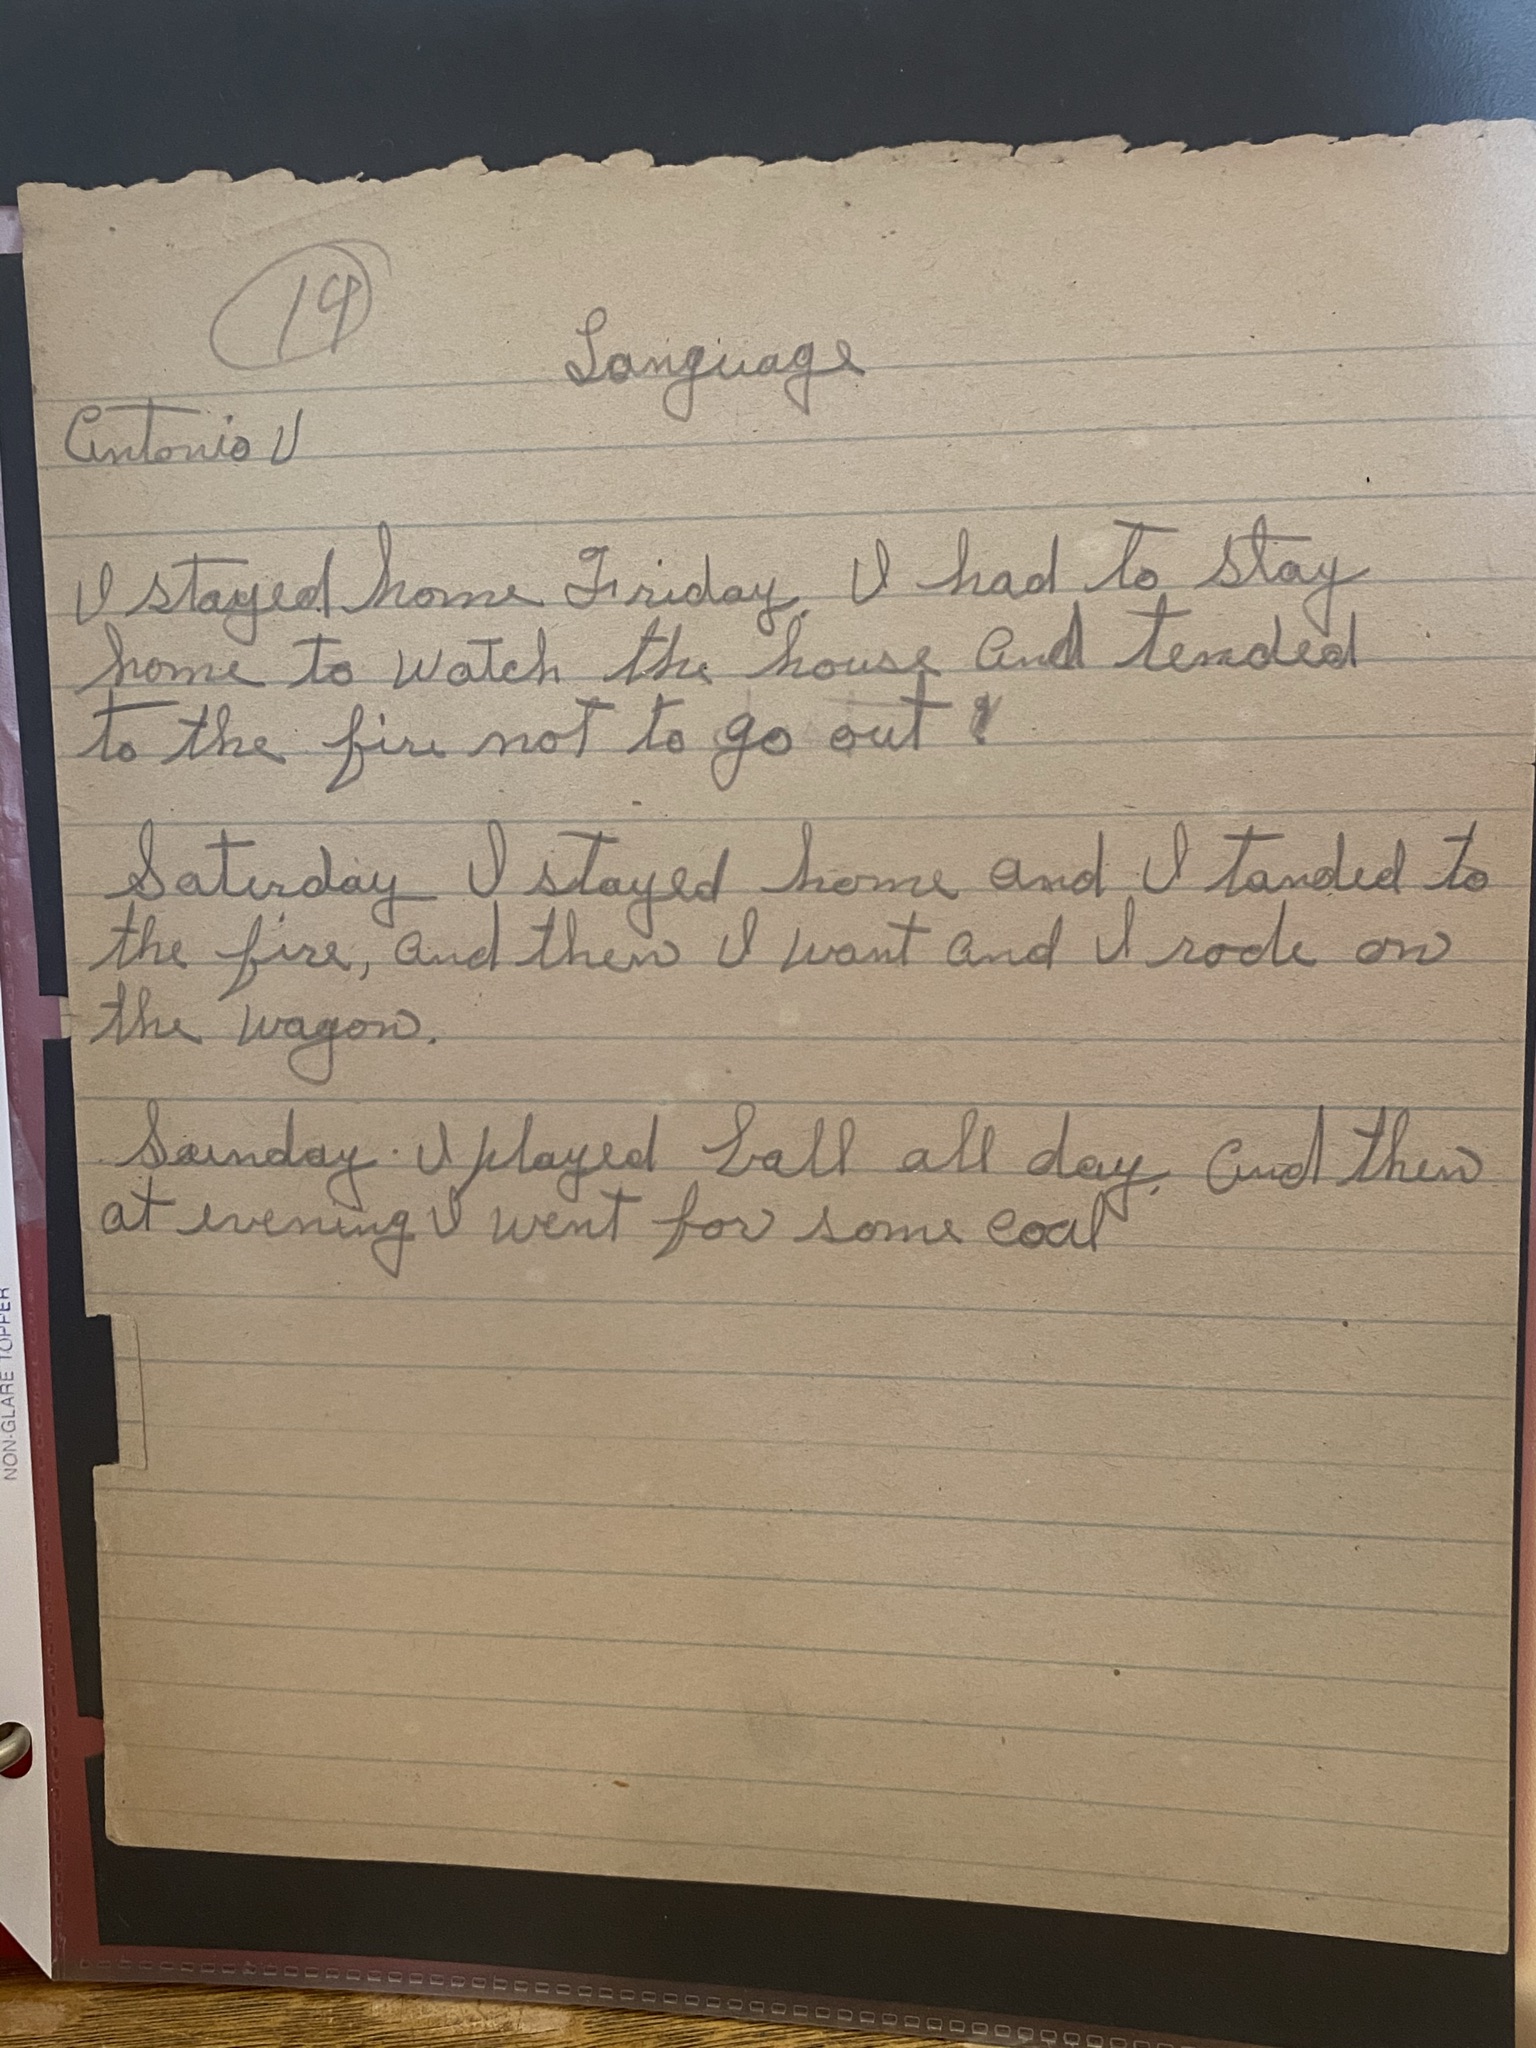 19
Language
Antonio V
I stayed home Friday. I had to stay
home to watch the house and tended
to the fire not to go out
Saturday I stayed home and I tanded to
the fire, and then I want and I rode on
the wagon.
Sunday. I played ball all day. And then
at evening I went for some coal
NON-GLARE TOPPER